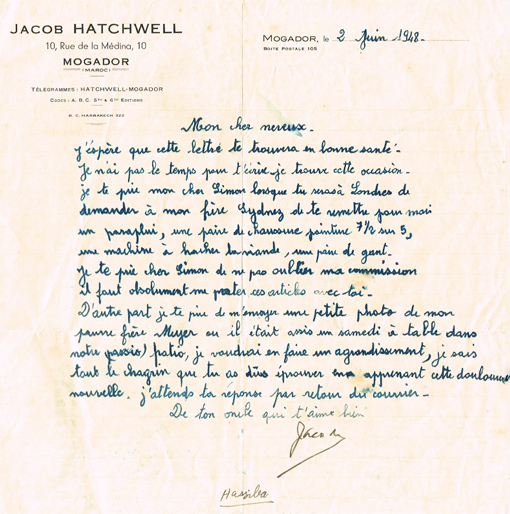 JACOB HATCHWELL
10, Rue de la Médina, 10
MOGADOR
(MAROC)
TÉLÉGRAMMES: HATCHWELL-MOGADOR
CODES: A. B. C. 5me & 6me EDITIONS
R. C. MARRAKECH 322
MOGADOR, le 2 Juin 1948-
BOITE POSTALE 105
Mon cher neveux-
j'éspère que cette lettre te trouvera en bonne santé-
Je n'ai pas le temps pour t'écrire, je trouve cette occasion-
je te prie mon cher Simon lorsque tu seras à Londres de
demander à mon frère Sydney de te remettre pour moi
un paraplui, une paire de chaussure pointure 7½ sur 5,
une machine à hacher la viande, une paire de gant-
Je te prie cher Simon de ne pas oublier ma commission
il faut absolument me porter ces articles avec toi-
D'autre part je te prie de m'envoyer une petite photo de mon
pauvre frère Meyer ou il était assis un samedi à table dans
notre (passio) patio, je voudrai en faire un agrandissement, je sais
tout le chagrin que tu as dûs éprouver en apprenant cette douloureuse
nouvelle. j'attends ta réponse par retour du courrier-
De ton oncle qui t'aime bien
Jacob
Hassiba